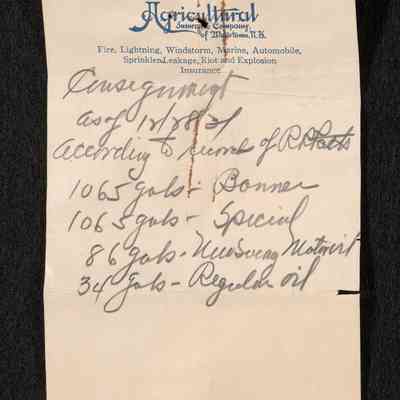 Agricultural
Insurance Company,
of Watertown, N.Y.
Fire, Lightning, Windstorm, Marine, Automobile,
Sprinkler Leakage, Riot and Explosion
Insurance
Consignment
as of 12/28/31
According to record of R.R. Potts
1065 gals - Banner
1065 gals - Special
86 gals - Motor oil
34 gals - Regular oil